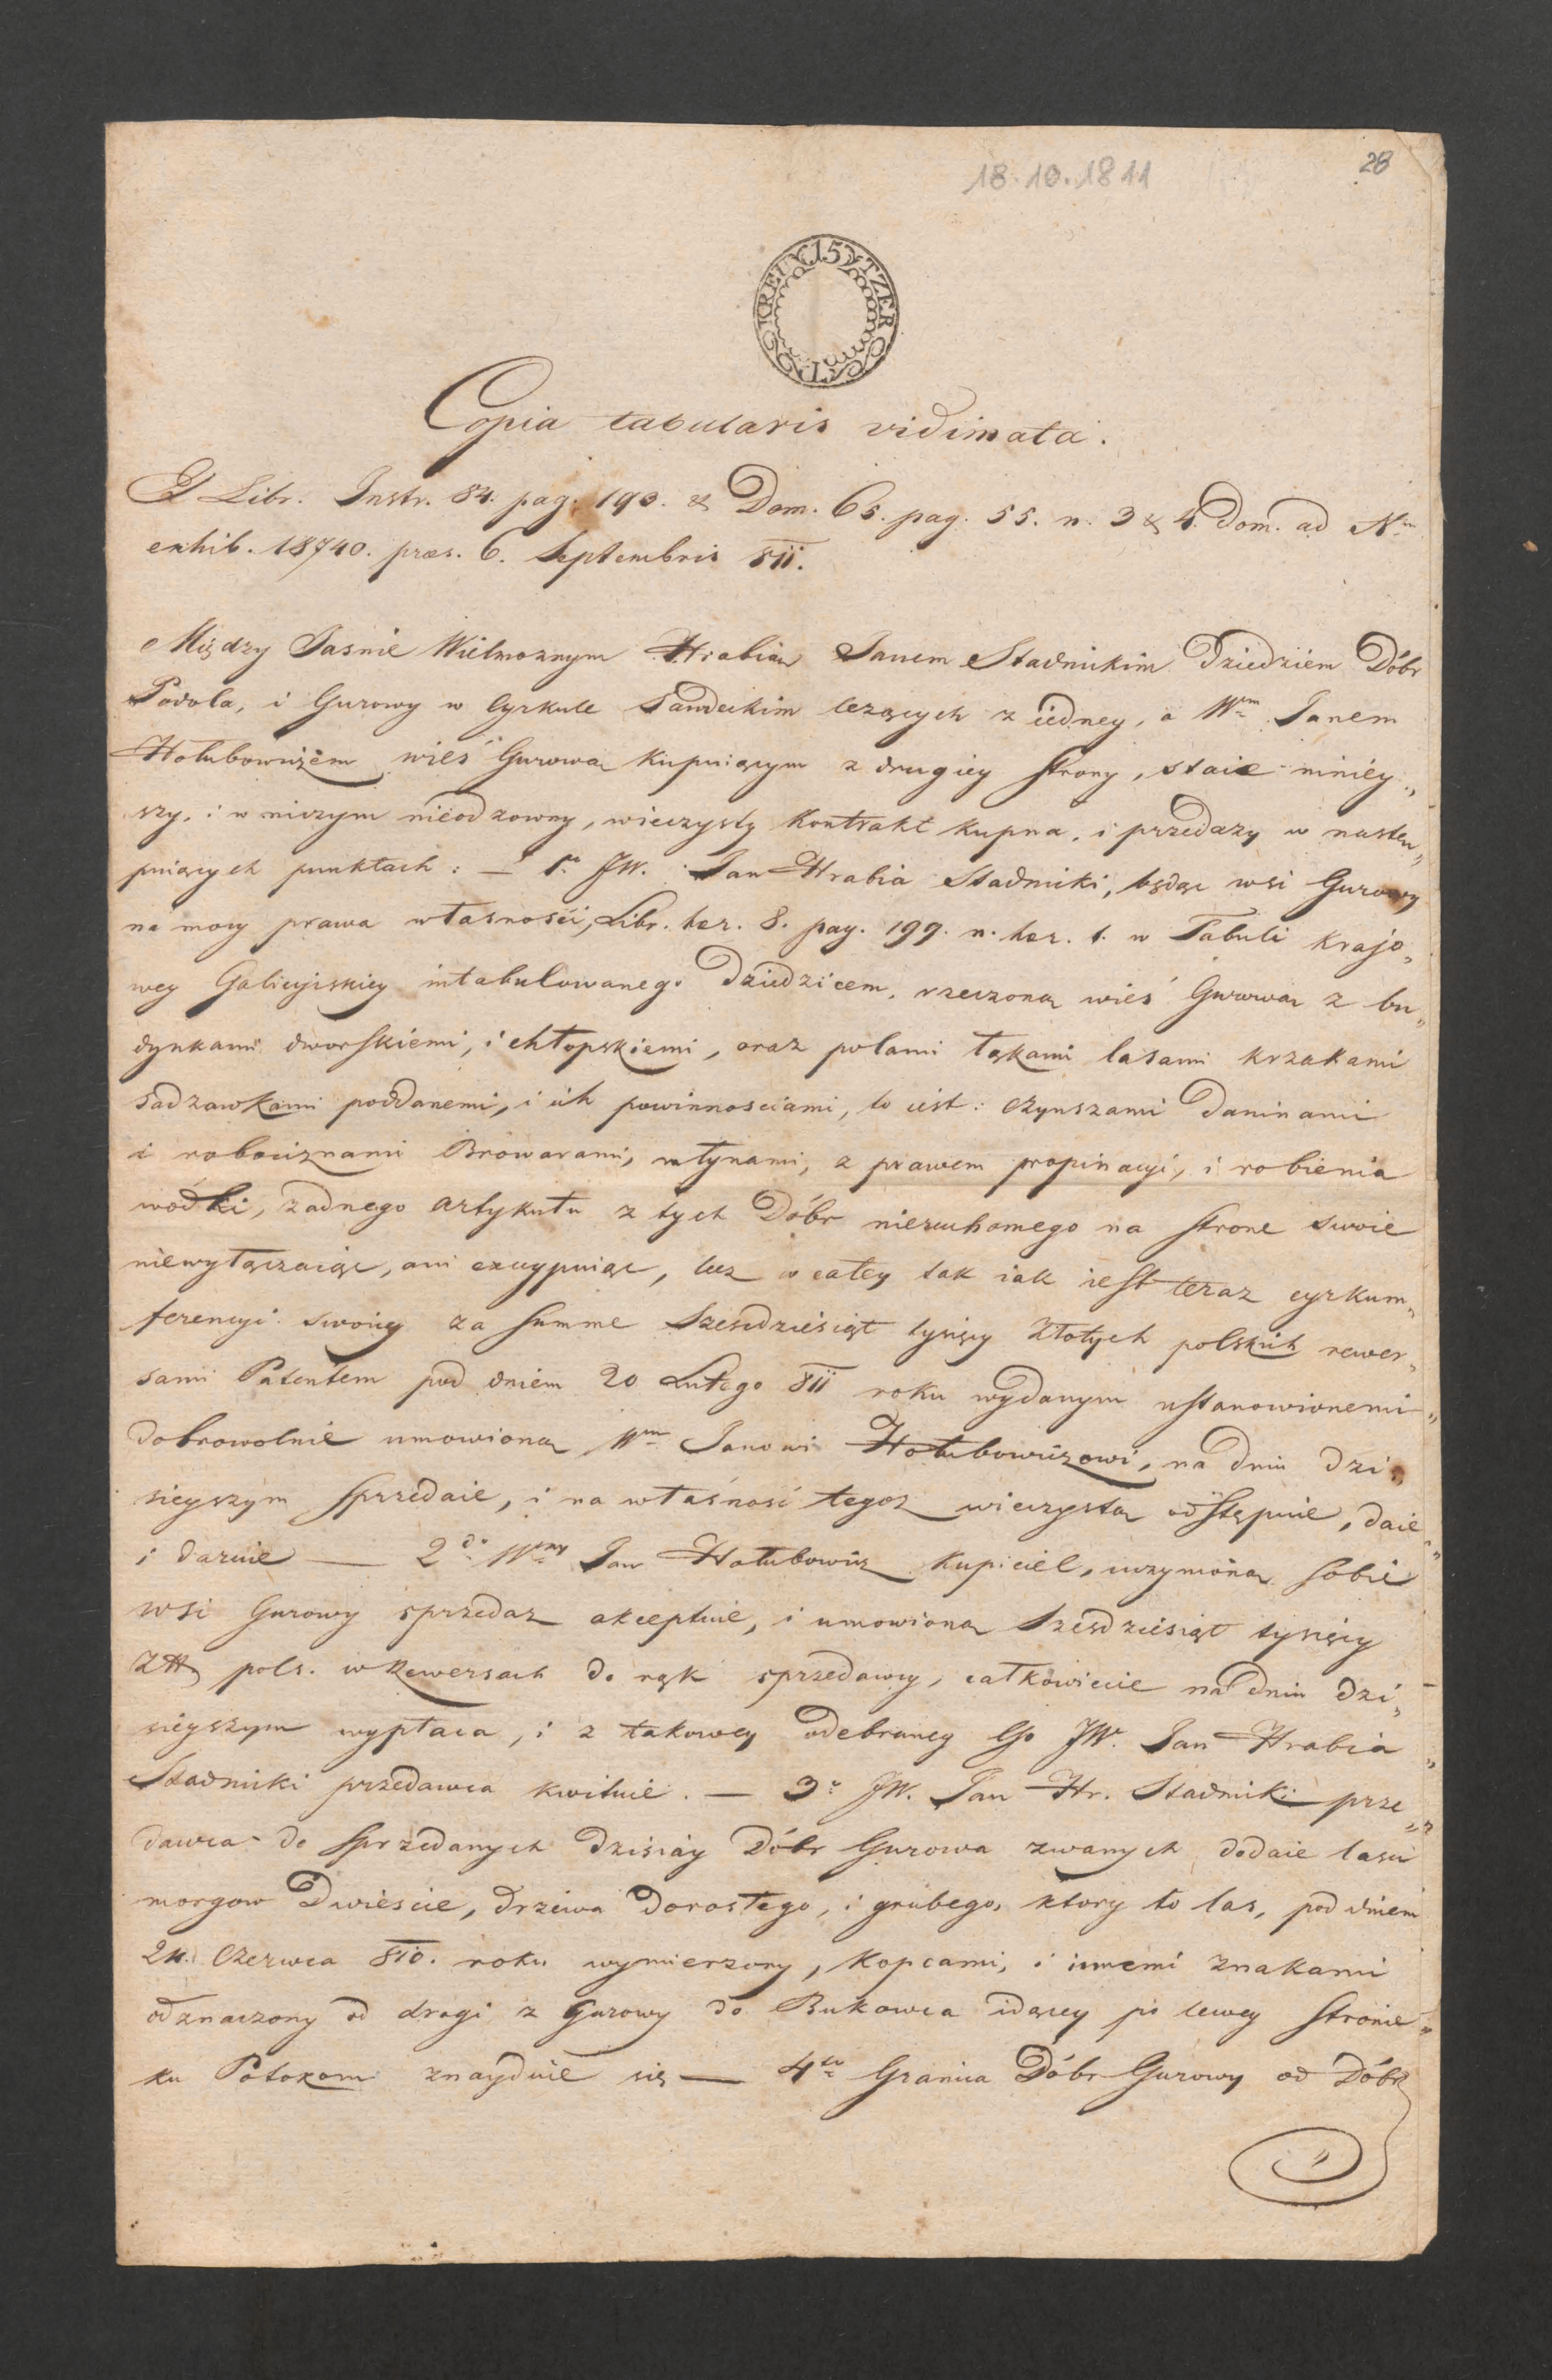 28
18.10.1811
15 KREUTZER
Copia tabularis vidimata.
Libr. Instr. 84. pag. 190. & Dom. 65. pag. 55. n. 3 & 4. Dom. ad Nm
exhib. 18740. præs. 6. Septembris 811.
Między Jasnie Wielmoznym Hrabią Janem Stadnickim Dziedziem Dóbr
Podola, i Gurowy w Cyrkule Sandeckim lezących z iedney, a Wm Janem
Hołubowiczem wieś Gurowa kupuiącym z drugiey strony, staie niniey„
szy, i w niczym nieodzowny, wieczysty Kontrakt kupna, i przedazy w nastę„
puiących punktach: — 1o JW. Jan Hrabia Stadnicki, będąc wsi Gurowy
na mocy prawa własności, Libr. hær. 8. pag. 199. n. hær. 1. w Tabuli krajo„
wey Galicyiskiey intabulowanego Dziedzicem, rzeczoną wieś Gurowa z bu„
dynkami dworskiemi, i chłopskiemi, oraz polami łąkami lasami krzakami
sadzawkami poddanemi, i ich powinnosciami, to iest: czynszami Daninami
i robociznami Browarami, młynami, z prawem propinacyi, i robienia
wodki, zadnego artykułu z tych Dóbr nieruchomego na strone swoie
niewyłączaiąc, ani excypuiąc, lecz w całey tak iak iest teraz cyrkum„
ferencyi swoiey za summe Szescdziesiąt tysięcy Złotych polskich rewer„
sami Patentem pod dniem 20 Lutego 811 roku wydanym ustanowionemi„
dobrowolnie umowioną Wm Janowi Hołubowiczowi, na dniu dzi„
sieyszym sprzedaie, i na własnosć tegoz wieczystą odstępuie, daie„
i daruie — 2do Wny Jan Hołubowicz kupiciel, uczynioną sobie
wsi Gurowy sprzedaz akceptuie, i umowioną Szescdziesiąt tysięcy
Złł pols. w Rewersach do rąk sprzedawcy, całkowicie na dniu dzi„
sieyszym wypłaca, i z takowey odebraney Go JW. Jan Hrabia „
Stadnicki przedawca kwituie. — 3o JW. Jan Hr. Stadnicki prze„
dawca do sprzedanych dzisiay Dóbr Gurowa zwanych dodaie lasu
morgow Dwiescie, drzewa Dorosłego, i grubego, ktory to las, pod dniem
24. Czerwca 810. roku wymierzony, Kopcami, i innemi znakami
odznaczony od drogi z Gurowy do Bukowca idącey po lewey stronie„
ku Potokom znayduie się — 4to Granica Dóbr Gurowy od Dóbr